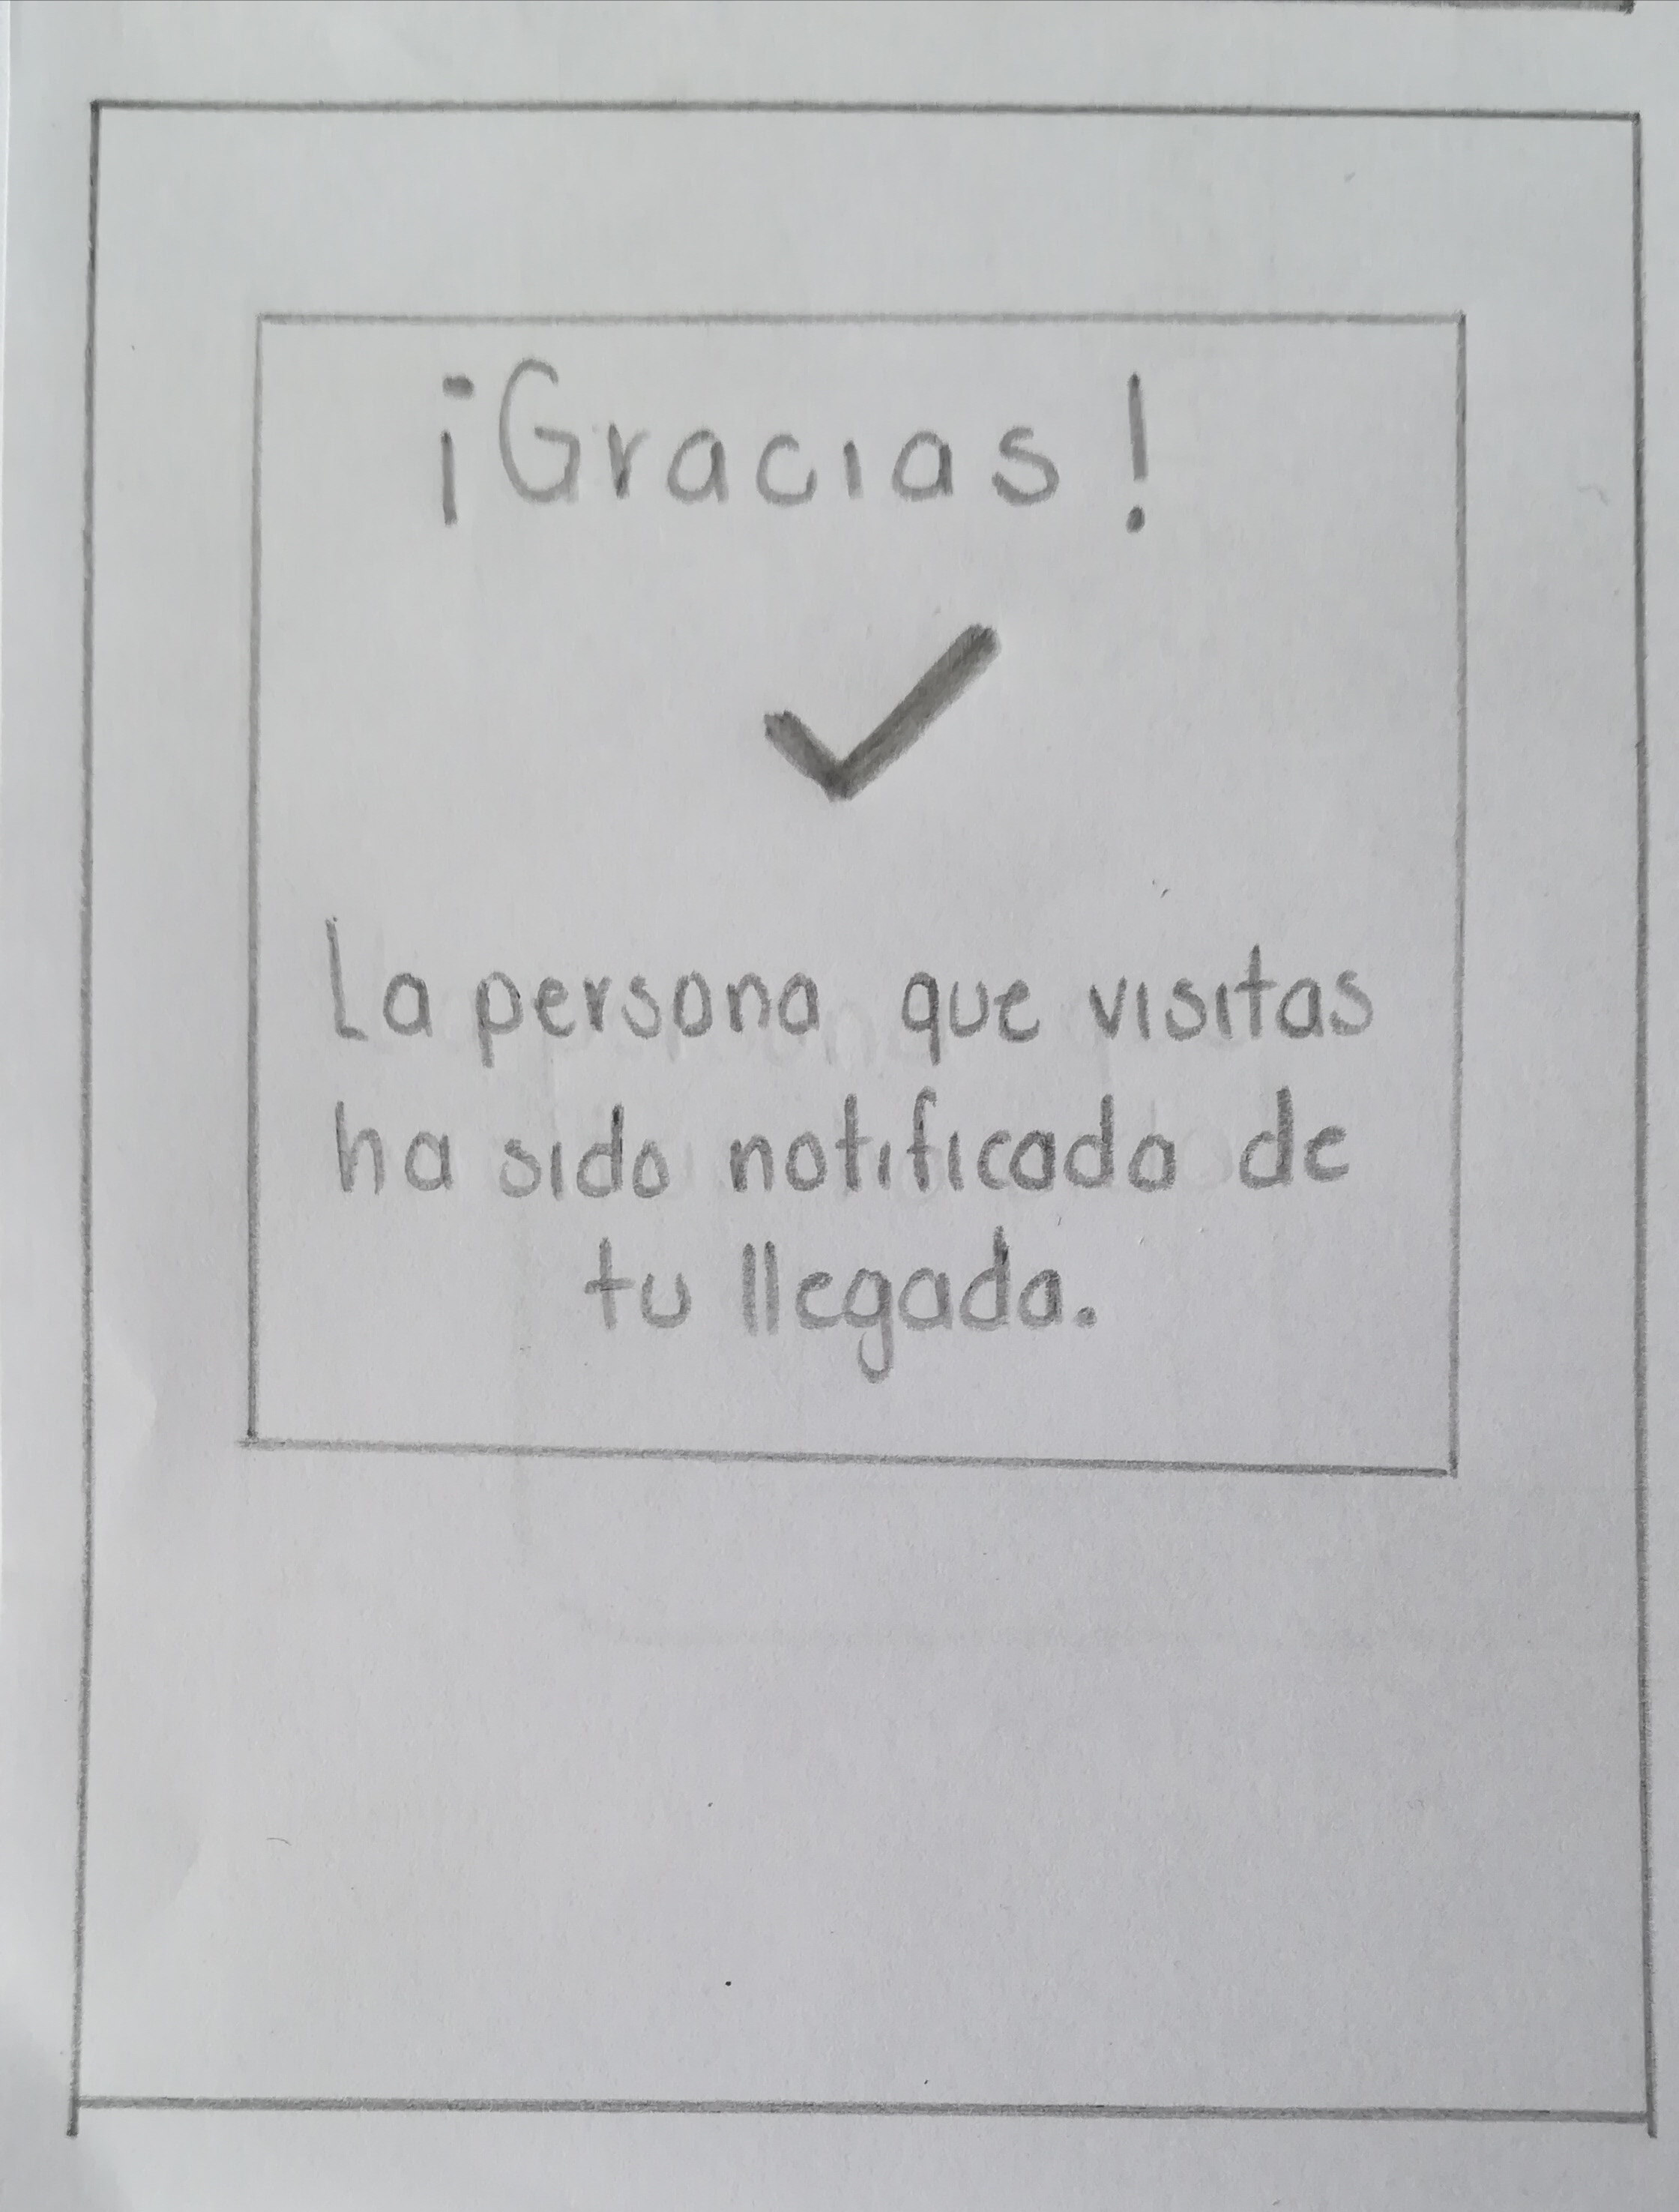 ¡Gracias!
La persona que visitas
ha sido notificada de
tu llegada.